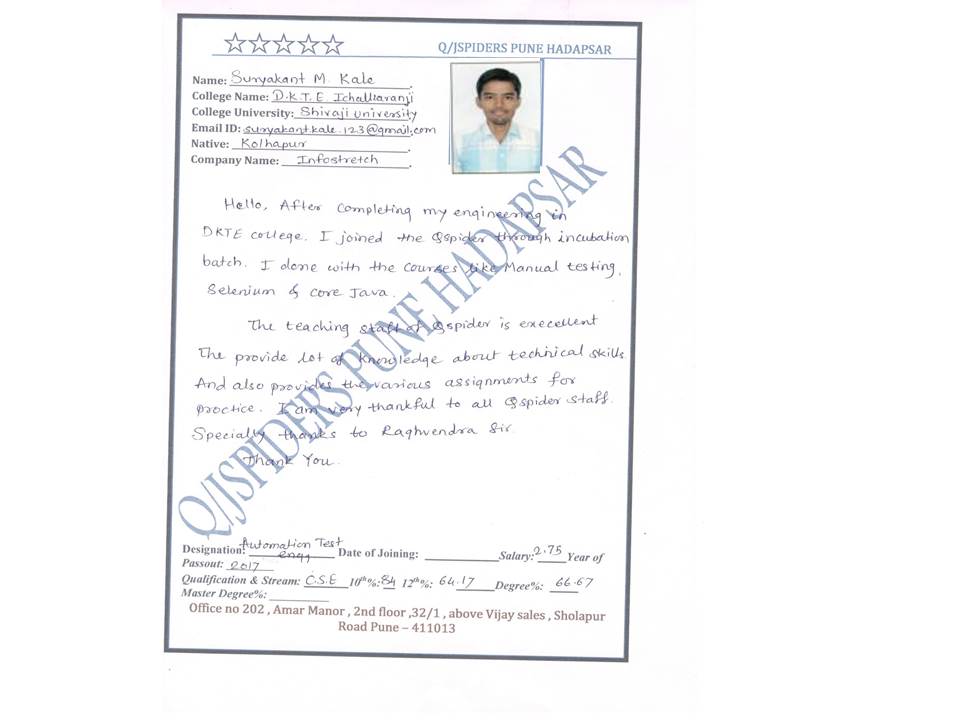 Q/JSPIDERS PUNE HADAPSAR
Name: Suryakant M. Kale
College Name: D.K.T.E. Ichalkaranji
College University: Shivaji University
Email ID: suryakantkale.123@gmail.com
Native: Kolhapur
Company Name: Infostretch
Hello, After completing my engineering in
DKTE college. I joined the Qspider through incubation
batch. I done with the courses like Manual testing,
Selenium & Core Java.
The teaching staff of Qspider is execellent
The provide lot of knowledge about technical skills.
And also provides the various assignments for
practice. I am very thankful to all Qspider staff.
Specially thanks to Raghvendra Sir.
Thank You.
Q/JSPIDERS PUNE HADAPSAR
Designation: Automation Test engg Date of Joining: Salary: 2.75 Year of
Passout: 2017
Qualification & Stream: C.S.E 10th%: 84 12th%: 64.17 Degree%: 66.67
Master Degree%:
Office no 202 , Amar Manor , 2nd floor ,32/1 , above Vijay sales , Sholapur
Road Pune – 411013